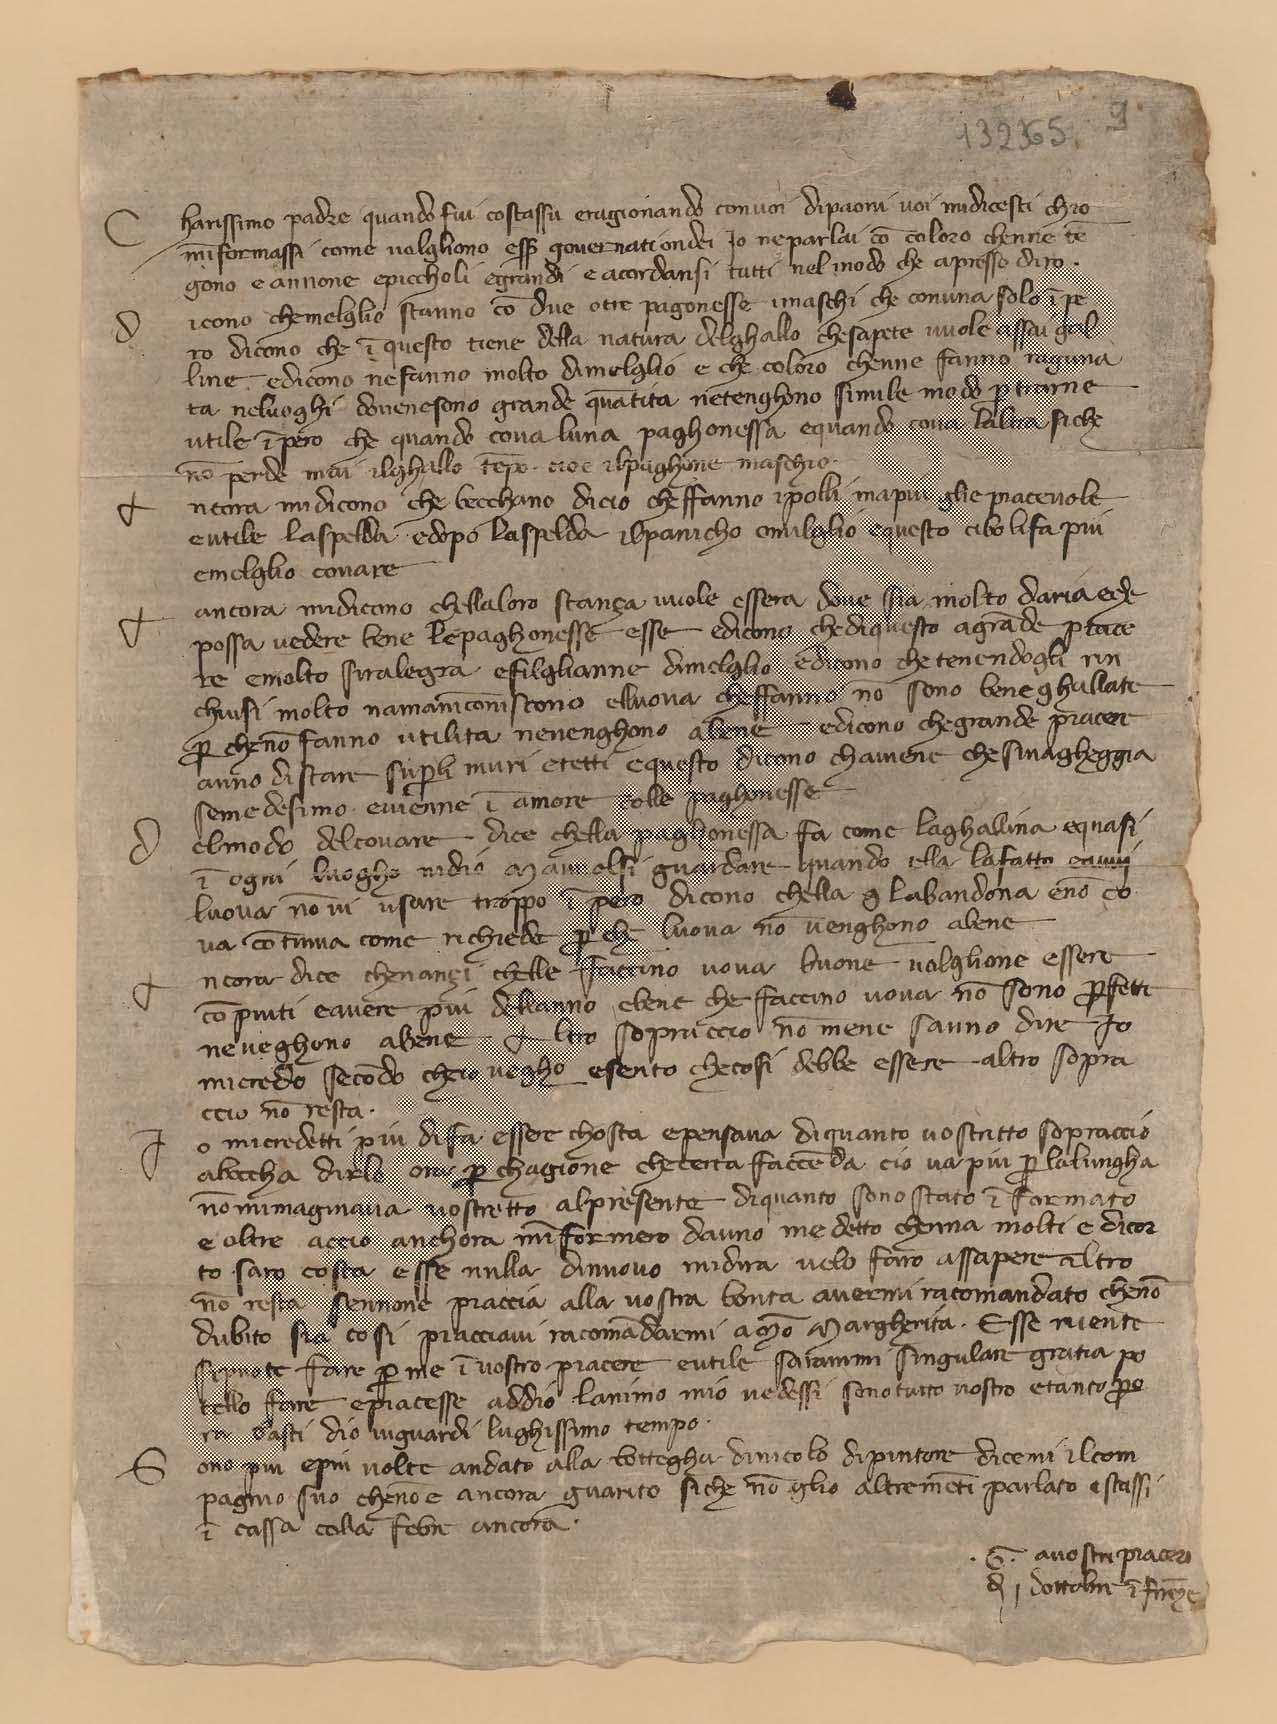 132365 9
Charissimo padre quando fui costassu eragionando convoi dipaoni voi midicesti chio
mīformassi come volghono esse governati ondei Io neparlai cō coloro chenne tē
gono e annone epiccholi egrandi e acordansi tutti nel modo che apresso diro.
dicono chemelglio stanno cō due otre pagonesse imaschi che conuna solo ī pe
ro dicono che ī questo tiene della natura delghallo chesapete vuole assai gal
line edicono nefanno molto dimelglio e che coloro chenne fanno raguna
ta neluoghi dovenesono grande quātita netenghono simile modo p trarne
utile ī pero che quando cova luna paghonessa equando cova laltra siche
nō perde mai ilghallo tēpo cioe ilpaghone maschio.
Ancora midicono che becchano dicio cheffanno ipolli mapiu glie piacevole
eutile laspelda edopo laspelda ilpanicho omilglio equesto cibo lifa piu
emelglio covare
Ancora midicono chellaloro stanza vuole essera dove sia molto daria eche
possa vedere bene lepaghonesse esse edicono chediquesto agrāde piace
re emolto siralegra efilglianne dimelglio edicono chetenendogli rin
chiusi molto namaniconiscono eluova cheffanno nō sono bene ghallate
p chenō fanno utilita nevenghono abene edicono chegrande piacere
anno distare supli muri etetti equesto dicono chaviene chesivagheggia
semedesimo evienne ī amore colle paghonesse
delmodo delcovare dice chella paghonessa fa come laghallina equasi
ī ogni luogho nidio Mavvolsi guardare quando ella lafatto
luova nō vi usare troppo ī pero dicono chella labandona enō co
va cōtinua come richiede p che luova nō venghono abene
Ancora dice chenanzi chelle faccino uova buone volglione essere
cōpiuti eavere piu dellanno ebene che faccino uova nō sono pfette
neveghono abene Altro sopraccio nō mene sanno dire Io
micredo secōdo cheio vegho esento checosi debbe essere altro sopra
ccio nō resta.
Io micredetti piu difa essere chosta epensava diquanto voscritto sopraccio
aboccha dirlo ora p chagione checerta faccēda cio va piu p lalungha
nōmimaginava voscritto alpresente diquanto sono stato īformato
e oltre accio anchora mīformero dauno me detto chenna molti e dicor
to saro costa esse nulla dinuovo midira velo faro assapere altro
nō resta sennone piaccia alla vostra bonta avermi racomandato chenō
dubito sia cosi piacciavi racomādarmi a Mō Margherita. Esse niente
sipuote fare p me ī vostro piacere eutile sarammi singulare gratia po
tello fare epiacesse addio lanimo mio vedessi sonotutto vostro etanto po
ra basti dio viguardi lughissimo tempo.
Sono piu epiu volte andato alla bottegha dinicolo dipintore dicemi ilcom
pagnio suo chenōe ancora guarito siche nō glio altremēti parlato estassi
ī cassa colla febre ancora.
avostri piaceri
dì 1 dottobre ī firēze